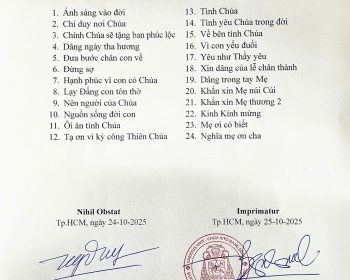 1. Ánh sáng vào đời
2. Chỉ duy nơi Chúa
3. Chính Chúa sẽ tặng ban phúc lộc
4. Dâng ngày tha hương
5. Đưa bước chân con về
6. Đừng sợ
7. Hạnh phúc vì con có Chúa
8. Lạy Đấng con tôn thờ
9. Nên người của Chúa
10. Nguồn sống đời con
11. Ôi ân tình Chúa
12. Tạ ơn vì kỳ công Thiên Chúa
13. Tình Chúa
14. Tình yêu Chúa trong đời
15. Về bên tình Chúa
16. Vì con yếu đuối
17. Yêu như Thầy yêu
18. Xin dâng của lễ chân thành
19. Dâng trong tay Mẹ
20. Khấn xin Mẹ núi Cúi
21. Khấn xin Mẹ thương 2
22. Kinh Kính mừng
23. Mẹ ơi có biết
24. Nghĩa mẹ ơn cha
Nihil Obstat
Tp.HCM, ngày 24-10-2025
Imprimatur
Tp.HCM, ngày 25-10-2025